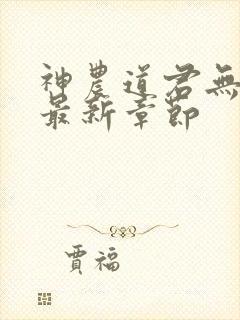 神農道君無
最新章節
賈福